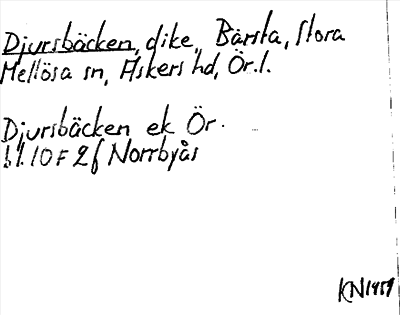 Djursbäcken, dike, Bärsta, Stora
Mellösa sn, Askers hd, Ör.l.
Djursbäcken ek Ör.
bl. 10 F 2 f Norrbyås
KN 1959